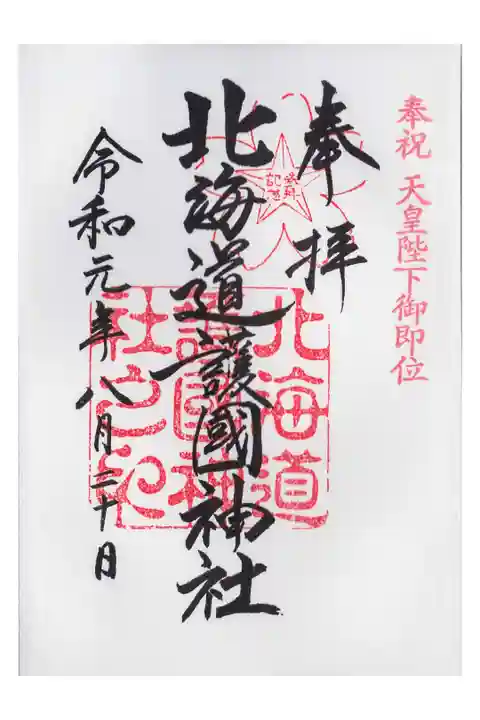 奉祝 天皇陛下御即位
奉拝
参拝
記念
北海道護國神社
北海道
護国神
社之記
令和元年八月二十日